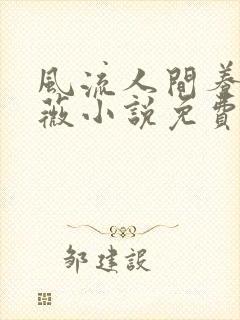 風流人間養
薇小說免費
邹建設